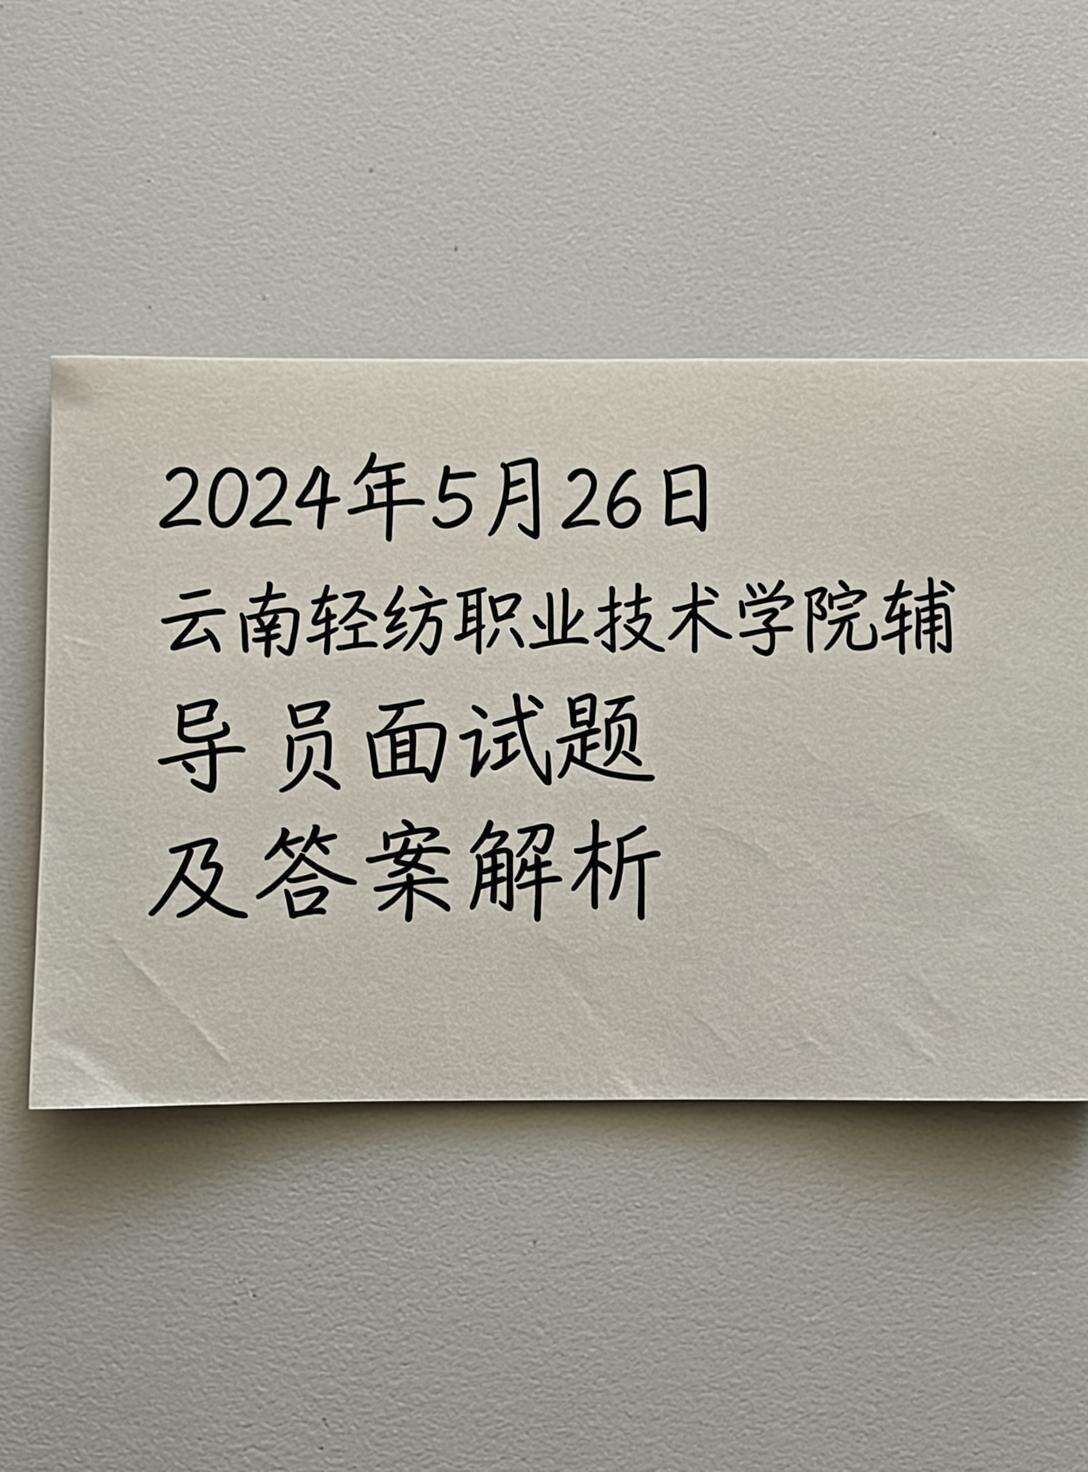 2024年5月26日
云南轻纺职业技术学院辅
导员面试题
及答案解析